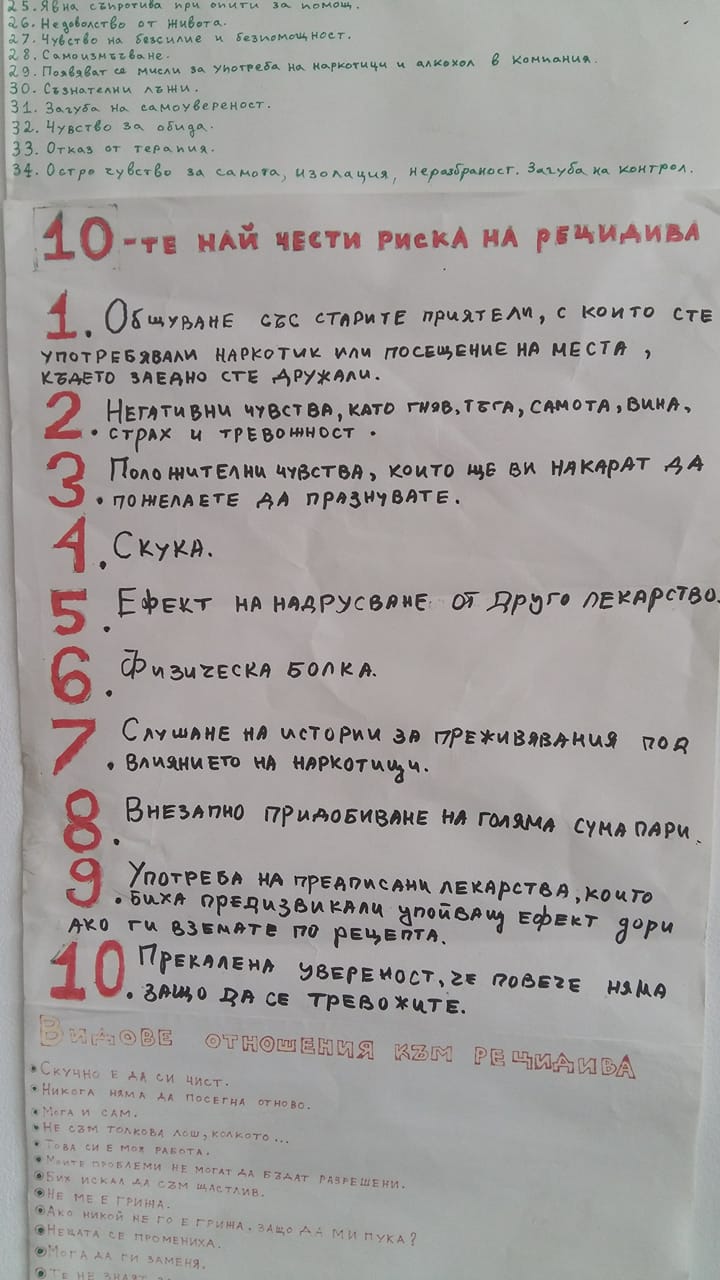 25. Явна съпротива при опити за помощ.
26. Недоволство от живота.
27. Чувство на безсилие и безпомощност.
28. Самоизмъчване.
29. Появяват се мисли за употреба на наркотици и алкохол в компания.
30. Съзнателни лъжи.
31. Загуба на самоувереност.
32. Чувство за обида.
33. Отказ от терапия.
34. Остро чувство за самота, изолация, неразбраност. Загуба на контрол.
10-те най чести риска на рецидива
1. Общуване със старите приятели, с които сте
употребявали наркотик или посещение на места,
където заедно сте дружали.
2. Негативни чувства, като гняв, тъга, самота, вина,
страх и тревожност.
3. Положителни чувства, които ще ви накарат да
пожелаете да празнувате.
4. Скука.
5. Ефект на надрусване от друго лекарство.
6. Физическа болка.
7. Слушане на истории за преживявания под
влиянието на наркотици.
8. Внезапно придобиване на голяма сума пари.
9. Употреба на предписани лекарства, които
биха предизвикали упойващ ефект дори
ако ги вземате по рецепта.
10. Прекалена увереност, че повече няма
защо да се тревожите.
Видове отношения към рецидива
• Скучно е да си чист.
• Никога няма да посегна отново.
• Мога и сам.
• Не съм толкова лош, колкото...
• Това си е моя работа.
• Моите проблеми не могат да бъдат разрешени.
• Бих искал да съм щастлив.
• Не ме е грижа.
• Ако никой не го е грижа, защо да ми пука?
• Нещата се промениха.
• Мога да ги заменя.
• Те не знаят